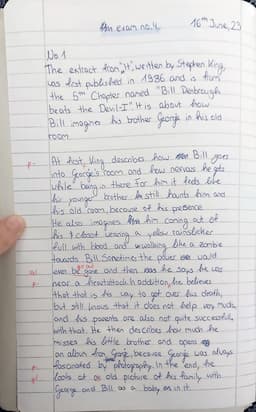 An exam no. 4 16th June, 23
No 1
The extract from "It", written by Stephen King,
was first published in 1986 and is from
the 5th Chapter named "Bill Denbrough
beats the Devil-I". It is about how
Bill imagines his brother George in his old
room.
At first, King describes how Bill goes
into George's room and how nervous he gets
while being in there. For him it feels like
his younger brother still haunts him and
his old room, because of his presence.
He also imagines him coming out of
his closet wearing a yellow rainslicker
full with blood and walking like a zombie
towards Bill. Sometimes the power would
even be gone and then he says he was
near a heartattack. In addition, he believes
that that is his way to get over his death,
but still knows that it does not help very much,
and his parents are also not quite successful
with that. He then describes how much he
misses his little brother and opens
an album from George, because George was always
fascinated by photography. In the end, he
looks at an old picture of his family with
George and Bill as a baby on in it.